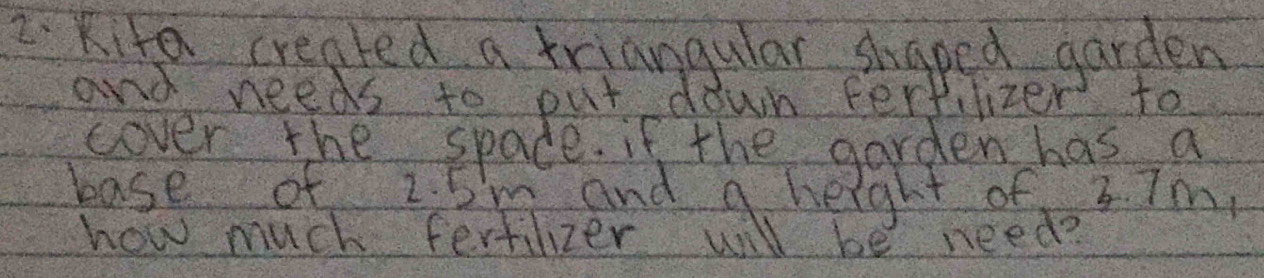 2. Rita created a triangular shaped garden
and needs to put down fertilizer to
cover the space. if the garden has a
base of 2.5m and a height of 3.7m,
how much fertilizer will be need?